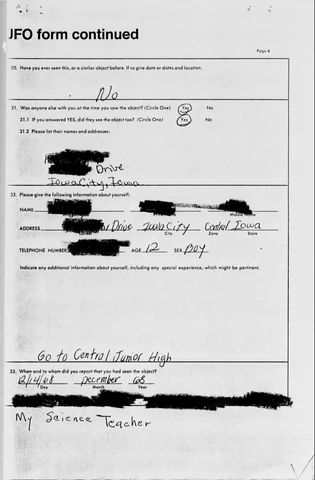 JFO form continued
Page 6
30. Have you ever seen this, or a similar object before. If so give date or dates and location.
No
31. Was anyone else with you at the time you saw the object? (Circle One) Yes No
31.1 If you answered YES, did they see the object too? (Circle One) Yes No
31.2 Please list their names and addresses:
Drive
Iowa City, Iowa
32. Please give the following information about yourself:
NAME
Middle Name
ADDRESS Drive Iowa City Central Iowa
Street City Zone State
TELEPHONE NUMBER AGE 12 SEX boy
Indicate any additional information about yourself, including any special experience, which might be pertinent.
Go to Central Junior High
33. When and to whom did you report that you had seen the object?
12/14/68 December 68
Day Month Year
My Science Teacher